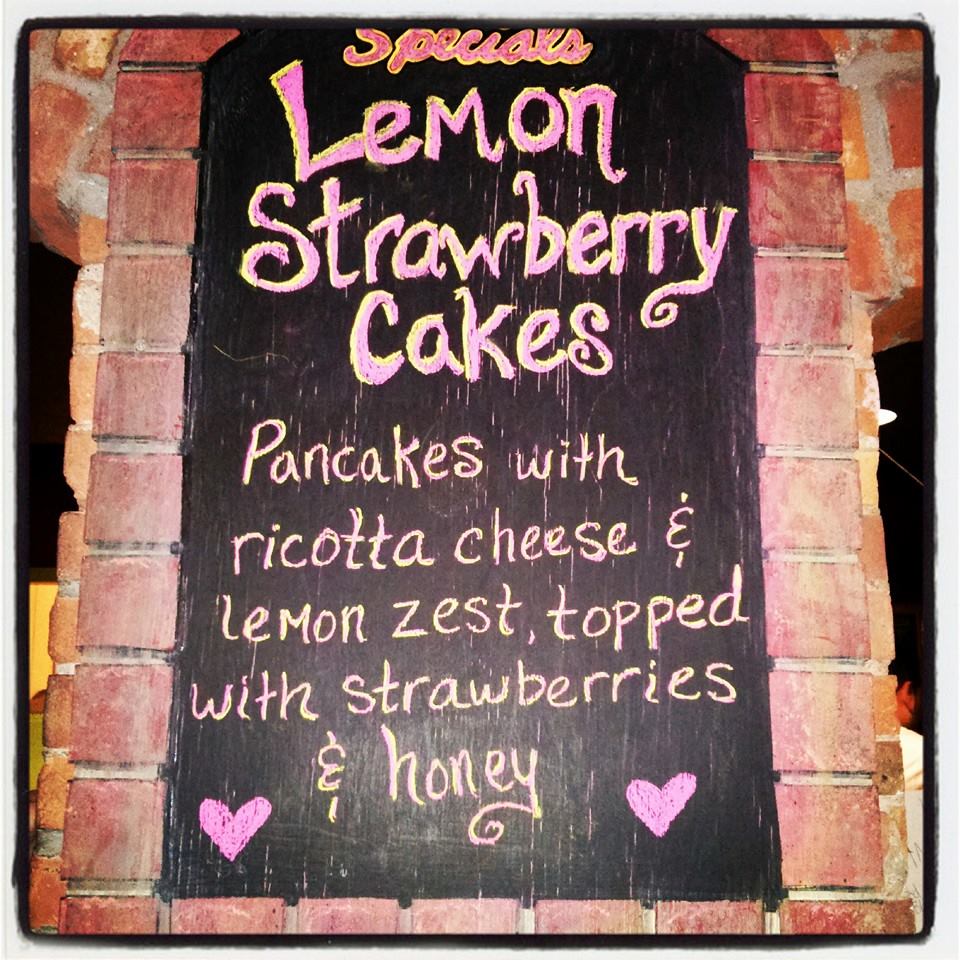 Specials
Lemon
Strawberry
Cakes
Pancakes with
ricotta cheese &
lemon zest, topped
with strawberries
& honey